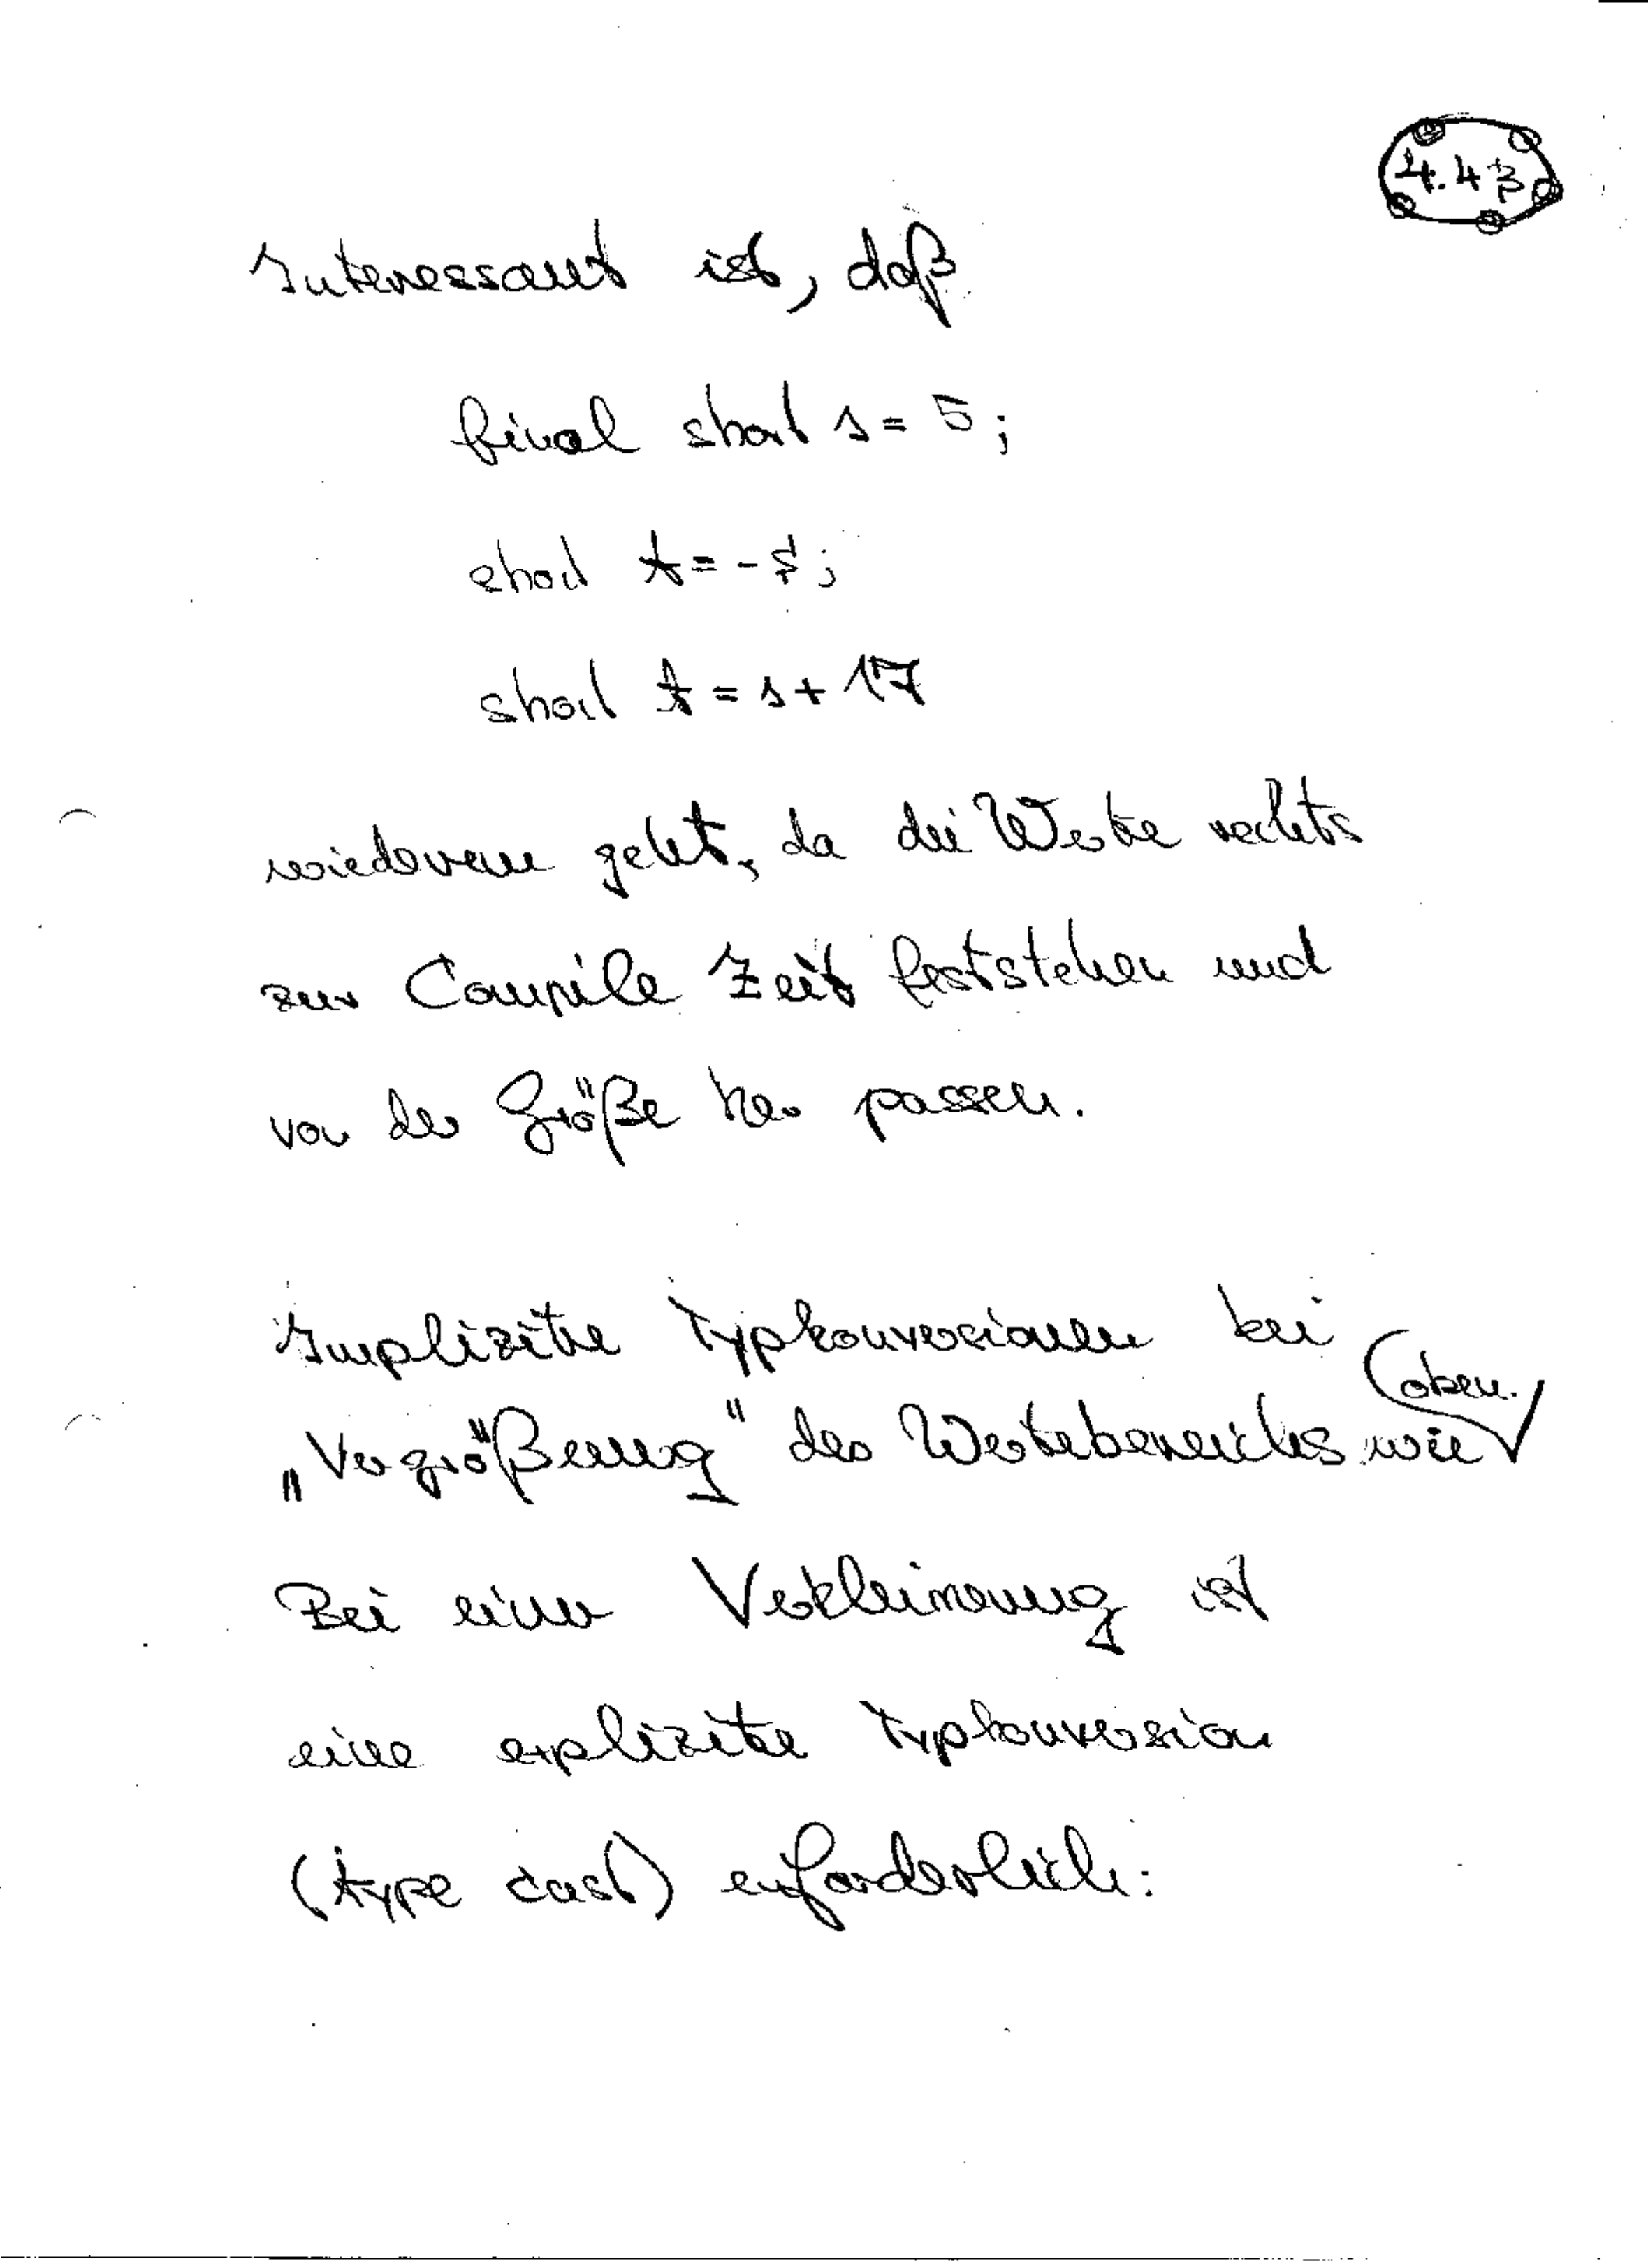 4.43
Interessant ist, daß
final short s = 5;
short t = - ;
short t = s + 17
wiederum geht, da die Werte rechts
zur Compile Zeit feststehen und
von der Größe her passen.
Implizite Typkonversionen bei
„Vergrößerung" des Wertebereiches wie oben.
Bei einer Verkleinerung ist
eine explizite Typkonversion
(type cast) erforderlich: